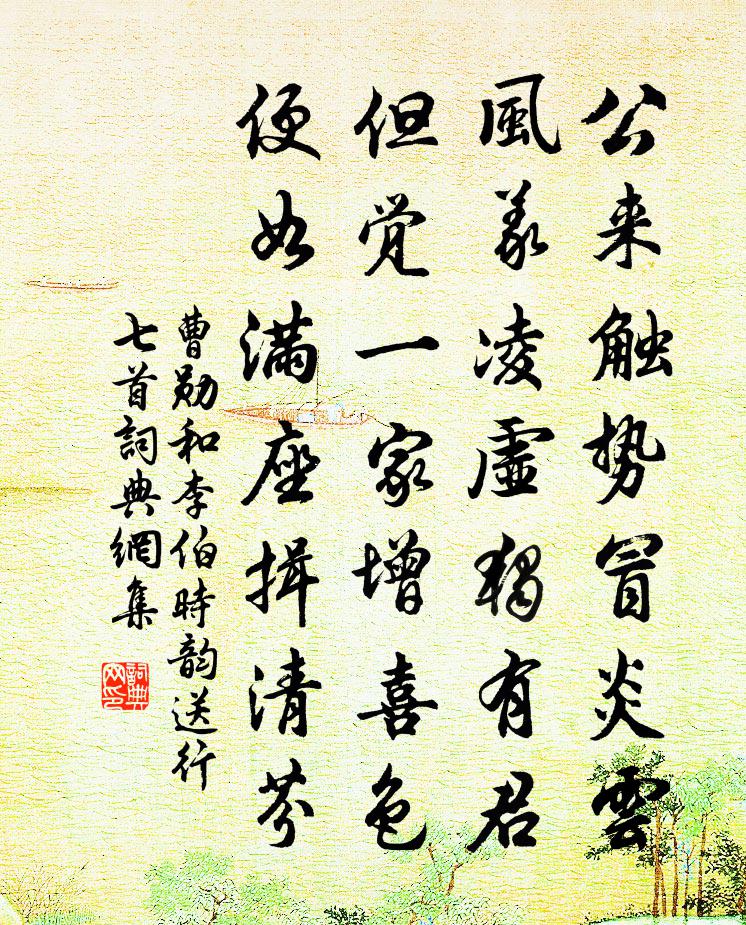 公来触势冒炎雲
風義凌虛獨有君
但觉一家增喜色
便如满座揖清芬
曹勋和李伯時韵送行
七首詞典網集
詞典网印